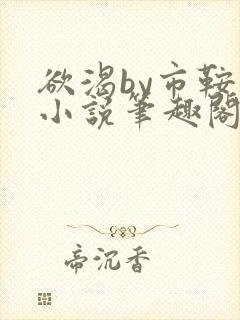 欲渴by市鞍
小説筆趣閣
帝沉香